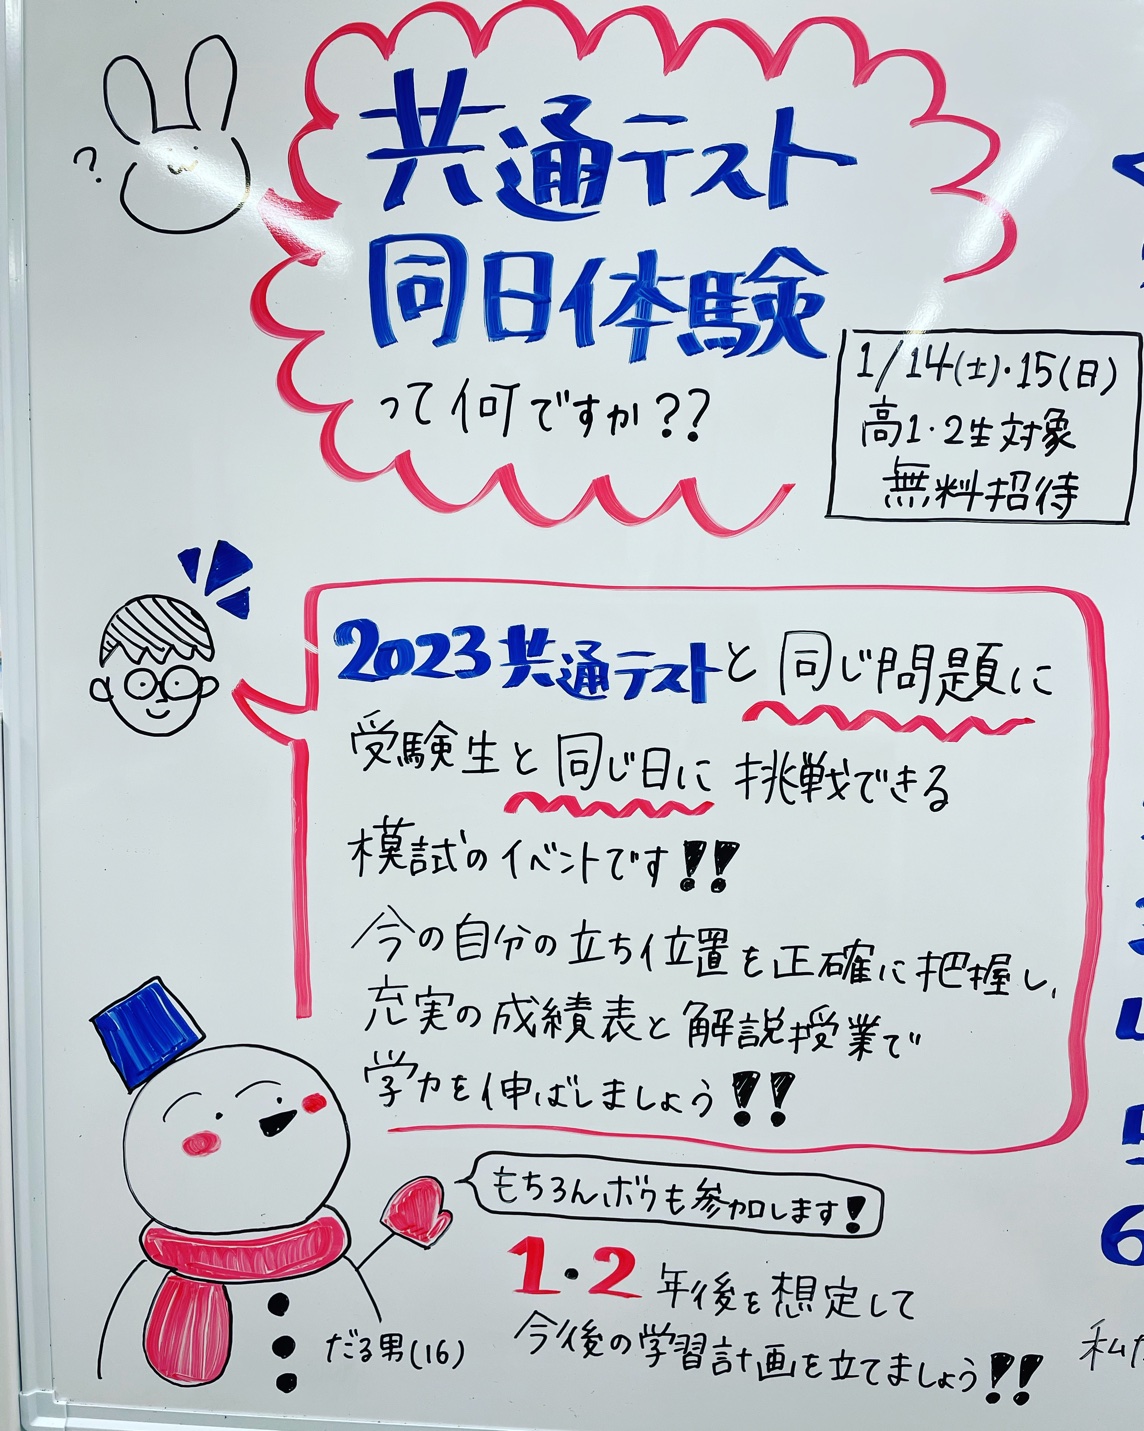 ?
共通テスト
同日体験
って何ですか??
1/14(土)・15(日)
高1・2生対象
無料招待
2023共通テストと同じ問題に
受験生と同じ日に挑戦できる
模試のイベントです!!
今の自分の立ち位置を正確に把握し、
充実の成績表と解説授業で
学力を伸ばしましょう!!
もちろんボクも参加します!
1・2年後を想定して
今後の学習計画を立てましょう!!
だる男(16)
6
私た